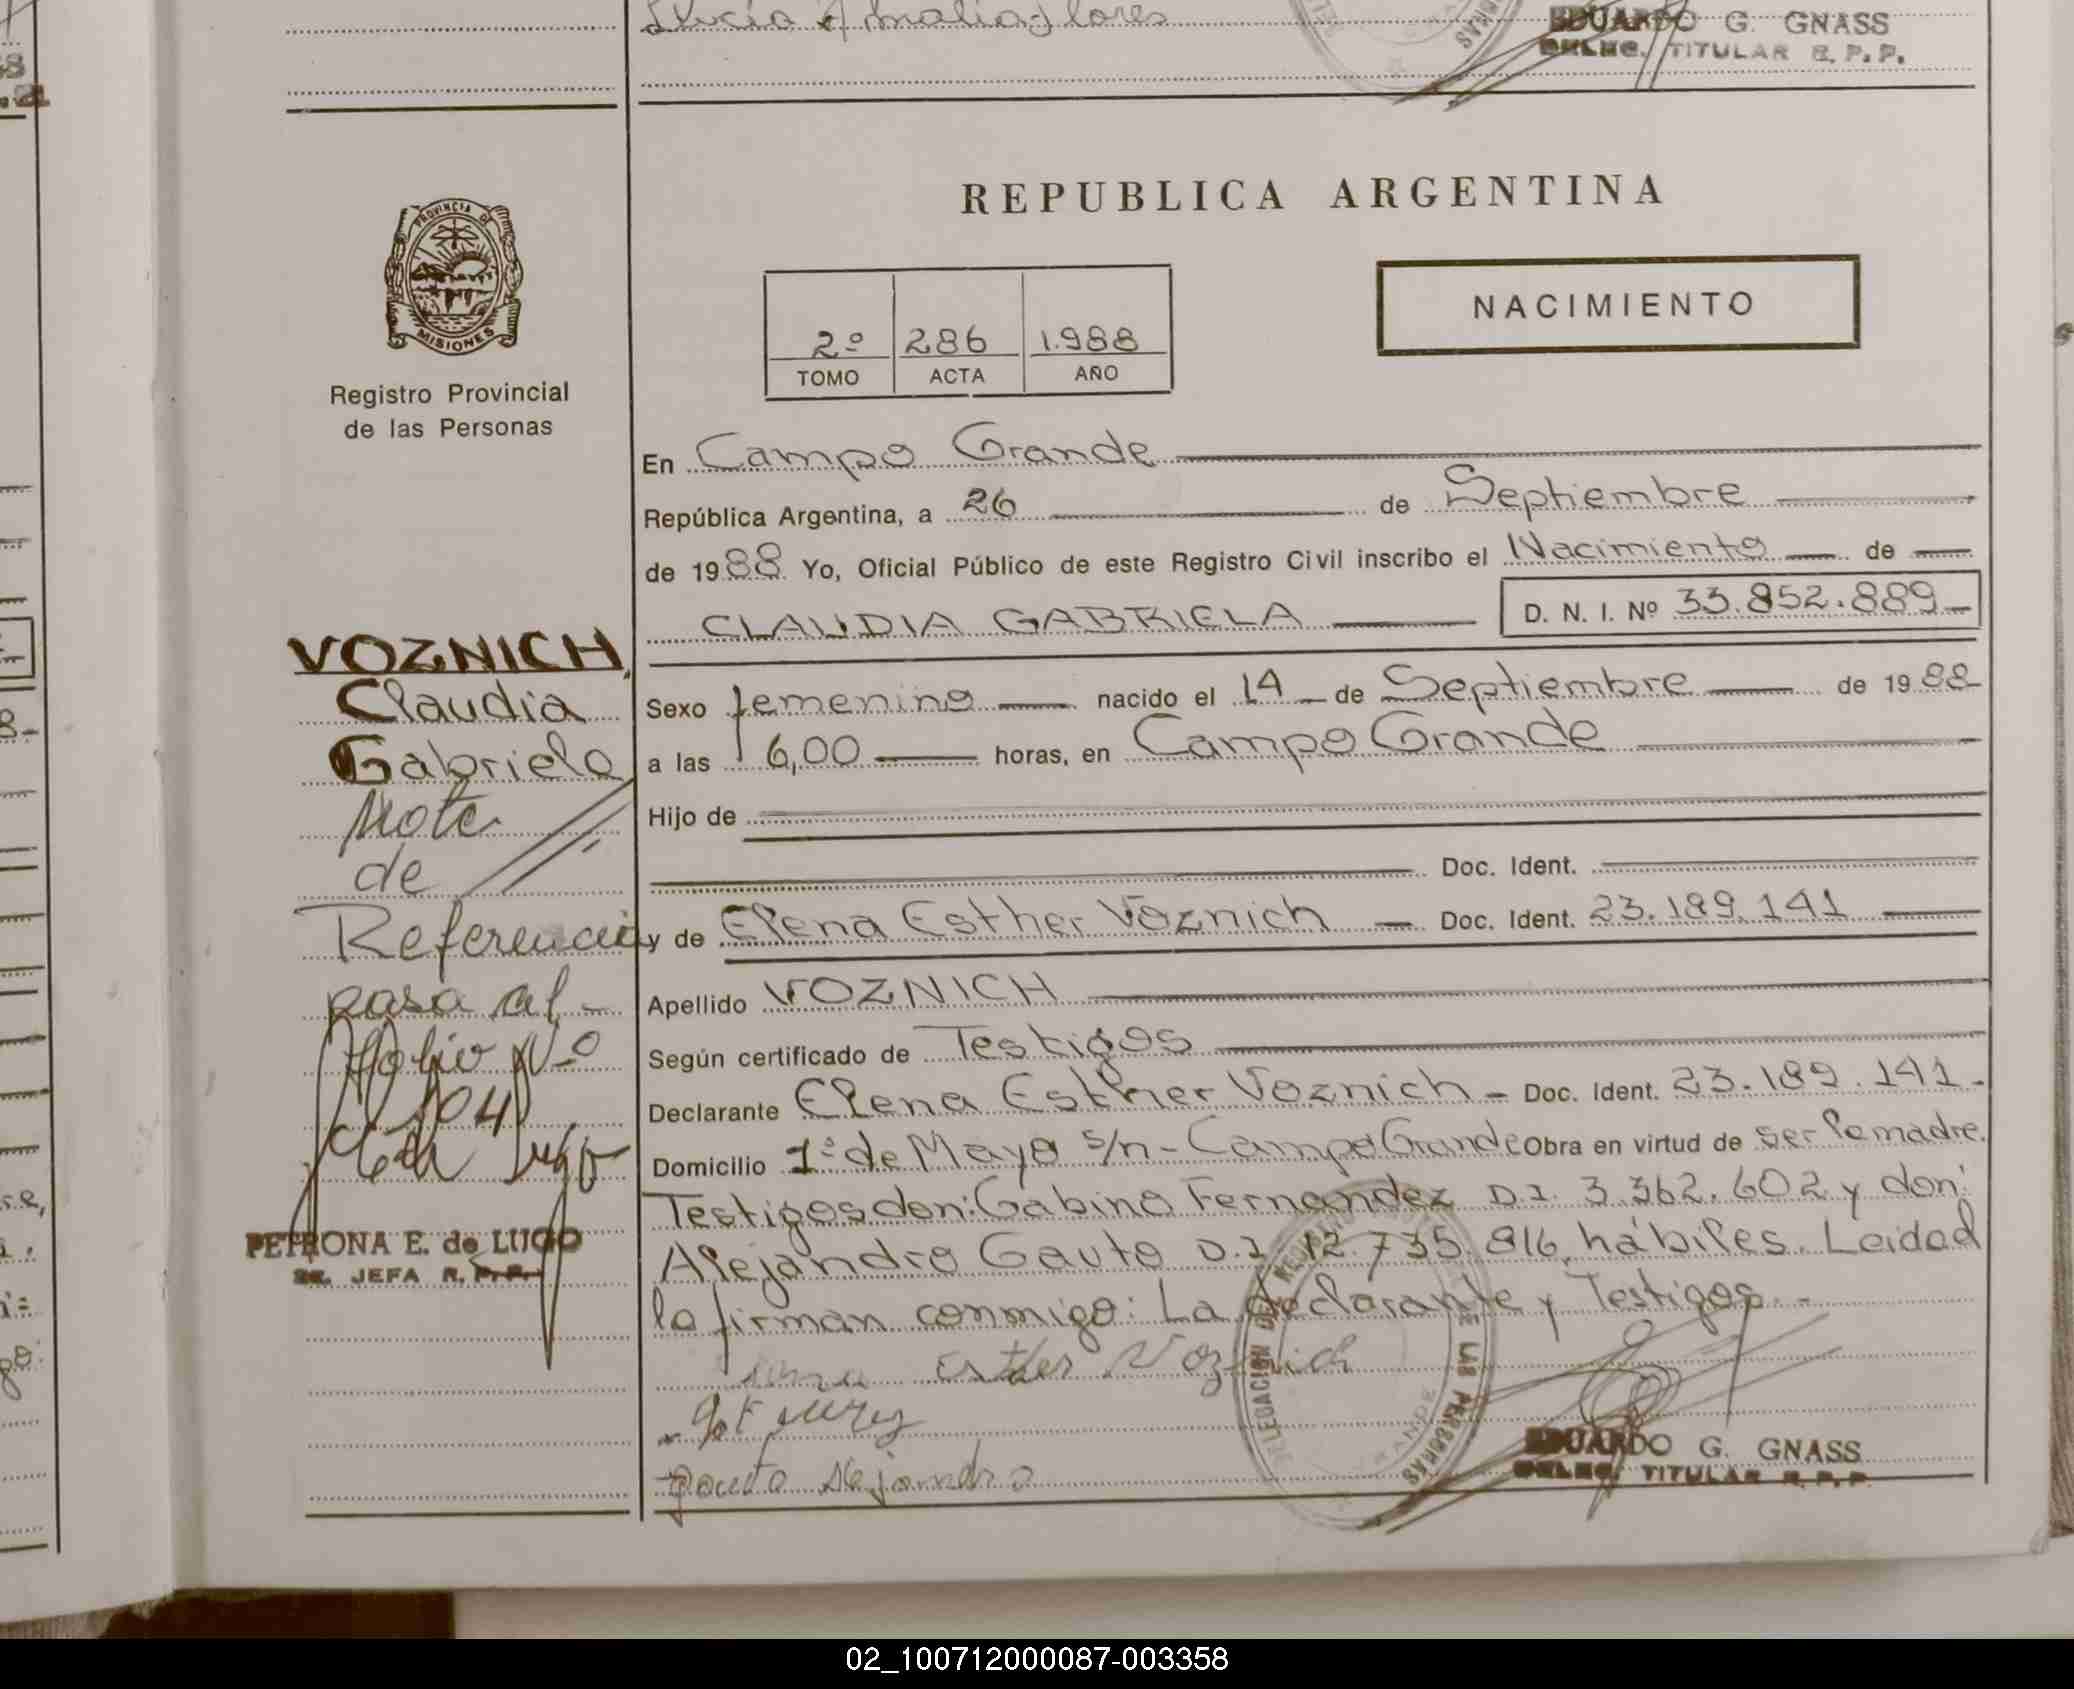 Lucía Amalia Flores
EDUARDO G. GNASS
DELEG. TITULAR R.P.P.
PROVINCIA DE
MISIONES
Registro Provincial
de las Personas
REPUBLICA ARGENTINA
2º 286 1.988
TOMO ACTA AÑO
NACIMIENTO
En Campo Grande
República Argentina, a 26 de Septiembre
de 1988 Yo, Oficial Público de este Registro Civil inscribo el Nacimiento de
CLAUDIA GABRIELA D. N. I. Nº 33.852.889
Sexo femenino nacido el 14 de Septiembre de 1988
a las 6,00 horas, en Campo Grande
Hijo de
Doc. Ident.
y de Elena Esther Voznich Doc. Ident. 23.189.141
Apellido VOZNICH
Según certificado de Testigos
Declarante Elena Esther Voznich - Doc. Ident. 23.189.141-
Domicilio 1º de Mayo s/n - Campo Grande Obra en virtud de ser la madre.
Testigos don: Gabino Fernandez D.I. 3.362.602 y don:
Alejandro Gauto D.I 12.735.816, hábiles. Leidad
la firman conmigo: La declarante y Testigos.-
Esther Voznich
Gauto Alejandro
DELEGACION DEL REGISTRO DE LAS PERSONAS
GRANDE
EDUARDO G. GNASS
DELEG. TITULAR R.P.P.
VOZNICH,
Claudia
Gabriela
Nota
de
Referencia
pasa al
Folio Nº
104
PETRONA E. de LUGO
JEFA R.P.P.
02_100712000087-003358